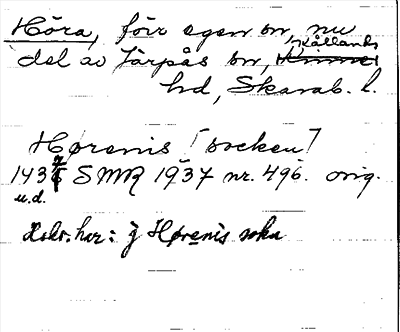 Höra, förr egen sn, nu
del av Järpås sn, Kållands
hd, Skarab. l.
Hørenis [socken]
1437 SMR 1937 nr. 496. orig.
u.d.
dskr. har: j Hørenis sokn